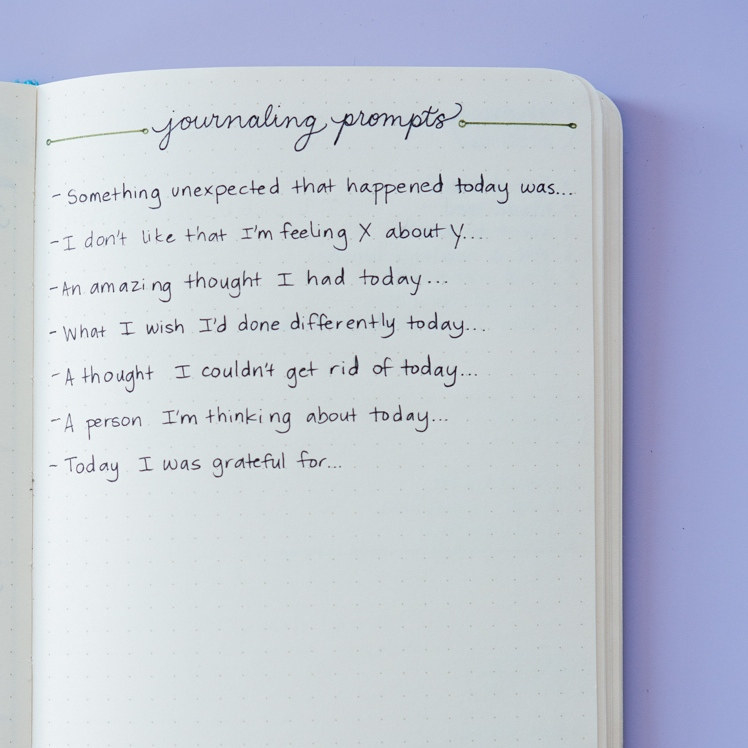 journaling prompts
- Something unexpected that happened today was...
- I don't like that I'm feeling X about Y...
- An amazing thought I had today...
- What I wish I'd done differently today...
- A thought I couldn't get rid of today...
- A person I'm thinking about today...
- Today I was grateful for...